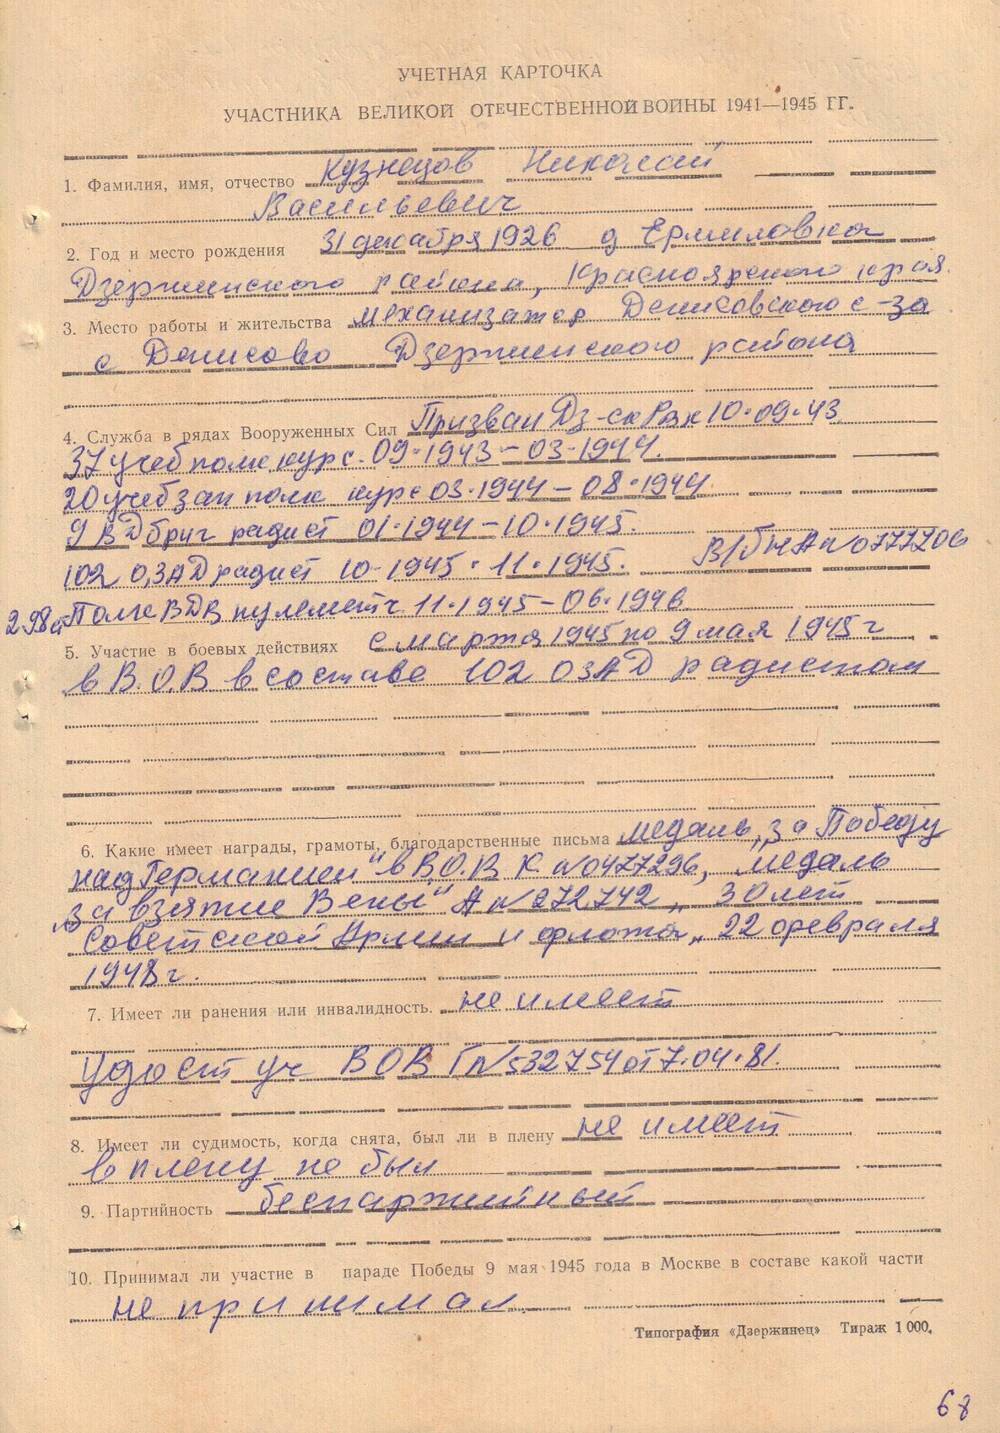 УЧЕТНАЯ КАРТОЧКА
УЧАСТНИКА ВЕЛИКОЙ ОТЕЧЕСТВЕННОЙ ВОЙНЫ 1941—1945 ГГ.
1. Фамилия, имя, отчество Кузнецов Николай
Васильевич
2. Год и место рождения 31 декабря 1926 д Ермиловка
Дзержинского района, Красноярского края.
3. Место работы и жительства механизатор Денисовского с-за
с Денисово Дзержинского района
4. Служба в рядах Вооруженных Сил Призван Дз-ск Рвк 10.09.43
37 учеб полк курс. 09.1943 – 03.1944.
20 учеб зап полк курс 03.1944 – 08.1944
9 ВД бриг радист 01.1944 – 10.1945.
102 ОЗАД радист 10-1945. 11.1945. В/б НА №0777706
298 й Полк ВДВ пулеметч 11.1945 – 06.1946
5. Участие в боевых действиях с марта 1945 по 9 мая 1945 г
в В.О.В в составе 102 ОЗАД радистом
6. Какие имеет награды, грамоты, благодарственные письма медаль „за Победу
над Германией" в В.О.В К №0477296, медаль
„за взятие Вены" А №272742 „ 30 лет
Советской Армии и флота„ 22 февраля
1948 г.
7. Имеет ли ранения или инвалидность. не имеет
Удост уч ВОВ Г №532754 от 7.04.81.
8. Имеет ли судимость, когда снята, был ли в плену не имеет
в плену не был
9. Партийность беспартийный
10. Принимал ли участие в параде Победы 9 мая 1945 года в Москве в составе какой части
не принимал
Типография «Дзержинец» Тираж 1 000.
68